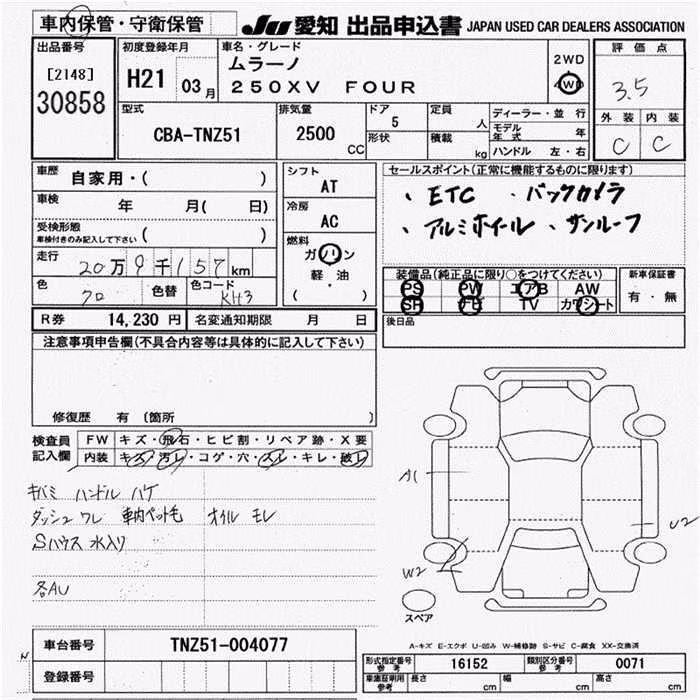 車内保管・守衛保管 JU 愛知 出品申込書 JAPAN USED CAR DEALERS ASSOCIATION
出品番号 [2148] 30858
初度登録年月 H21 03月
車名・グレード ムラーノ
250XV FOUR
2WD 4WD
評価点 3.5
外装 内装
C C
型式 CBA-TNZ51
排気量 2500 CC
ドア 5 形状
定員 人 積載 kg
ディーラー・並行
モデル年式 年
ハンドル 左・右
車歴 自家用・( )
車検 年 月( 日)
受検形態 車検付きのみ記入して下さい ( )
走行 20万9千157km
色 クロ 色替 色コード KH3
シフト AT
冷房 AC
燃料 ガソリン
軽・油
( )
セールスポイント(正常に機能するものに限ります)
、ETC 、バックカメラ
、アルミホイール 、サンルーフ
装備品(純正品に限り○をつけてください)
PS PW エアB AW
SR ナビ TV カワシート
新車保証書
有・無
R券 14,230円 名変通知期限 月 日
後日品
注意事項申告欄(不具合内容等は具体的に記入して下さい)
修復歴 有 〔箇所 〕
検査員記入欄
FW キズ・飛石・ヒビ割・リペア跡・X要
内装 キズ・汚レ・コゲ・穴・スレ・キレ・破レ
キバミ ハンドル ハゲ
ダッシュ ワレ 車内ペット毛 オイル モレ
Sハウス 水入り
各AU
A1
U2
W2
スペア
A-キズ E-エクボ U-凹み W-補修跡 S-サビ C-腐食 XX-交換済
車台番号 TNZ51-004077
登録番号
型式指定番号 参考 16152 類別区分番号 参考 0071
車庫証明用 参考 長さ cm 幅 cm 高さ cm